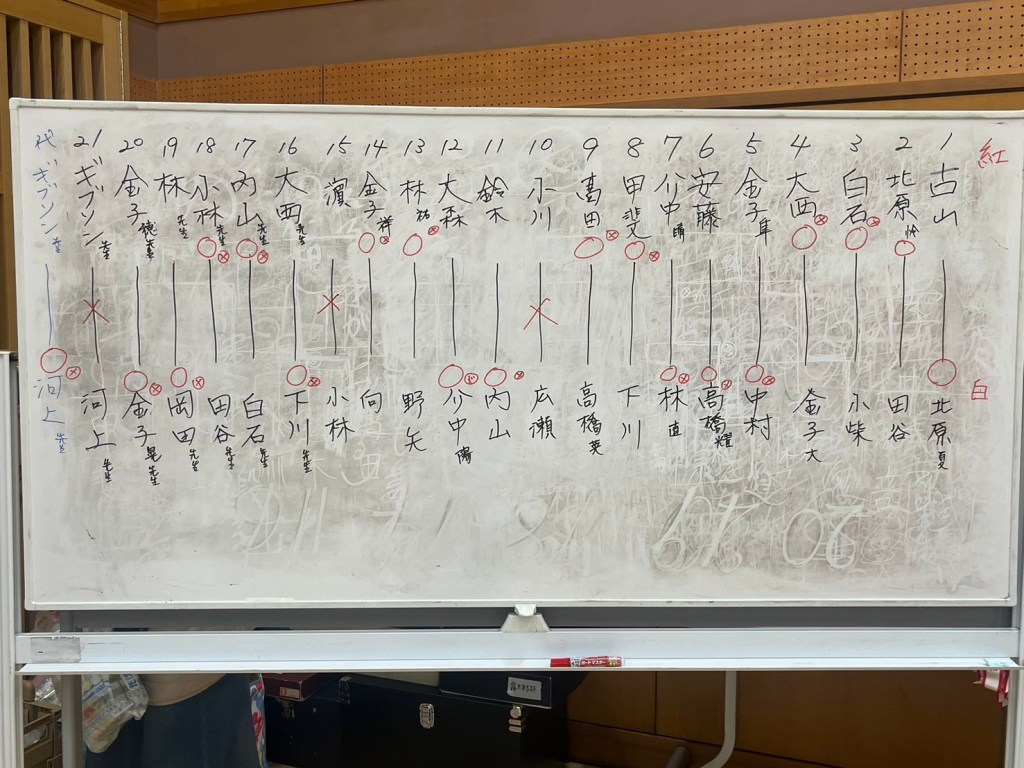 紅
白
1
古山
北原 夏
2
北原 怜
田谷
3
白石
小柴
4
大西
金子 大
5
金子 隼
中村
6
安藤
高橋 耀
7
介中
林 直
8
甲斐
下川
9
高橋 英
10
小川
広瀬
11
鈴木
内山
12
大森
介中 陽
13
林 祐
野矢
14
金子 祥
向
15
濱
小林
16
大西 先生
下川 先生
17
内山 先生
白石 先生
18
小林 先生
田谷 先生
19
林 先生
岡田 先生
20
金子 先生
金子 晃 先生
21
ギブソン 先生
河上 先生
代
ギブソン 先生
河上 先生
ボードマスター